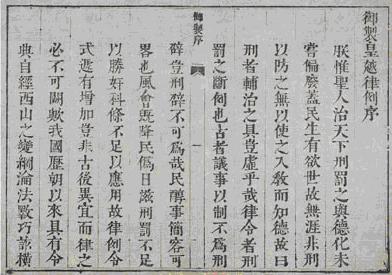 御製皇越律例序
朕惟聖人治天下刑罰之與德化未
嘗偏廢蓋民生有欲世故無涯非刑
以防之無以使之入敎而知德故曰
刑者輔治之具豈虛乎哉律令者刑
罰之斷例也古者議事以制不爲刑
御製序
一
辟豈刑辟不可爲哉民醇事簡容可
畧也風會既降民僞日滋刑罰不足
以勝奸科條不足以應用故律例令
式遞有增加豈非古後異宜而律之
必不可闕歟我國歷朝以來具有令
典自經西山之變綱淪法斁巧橫